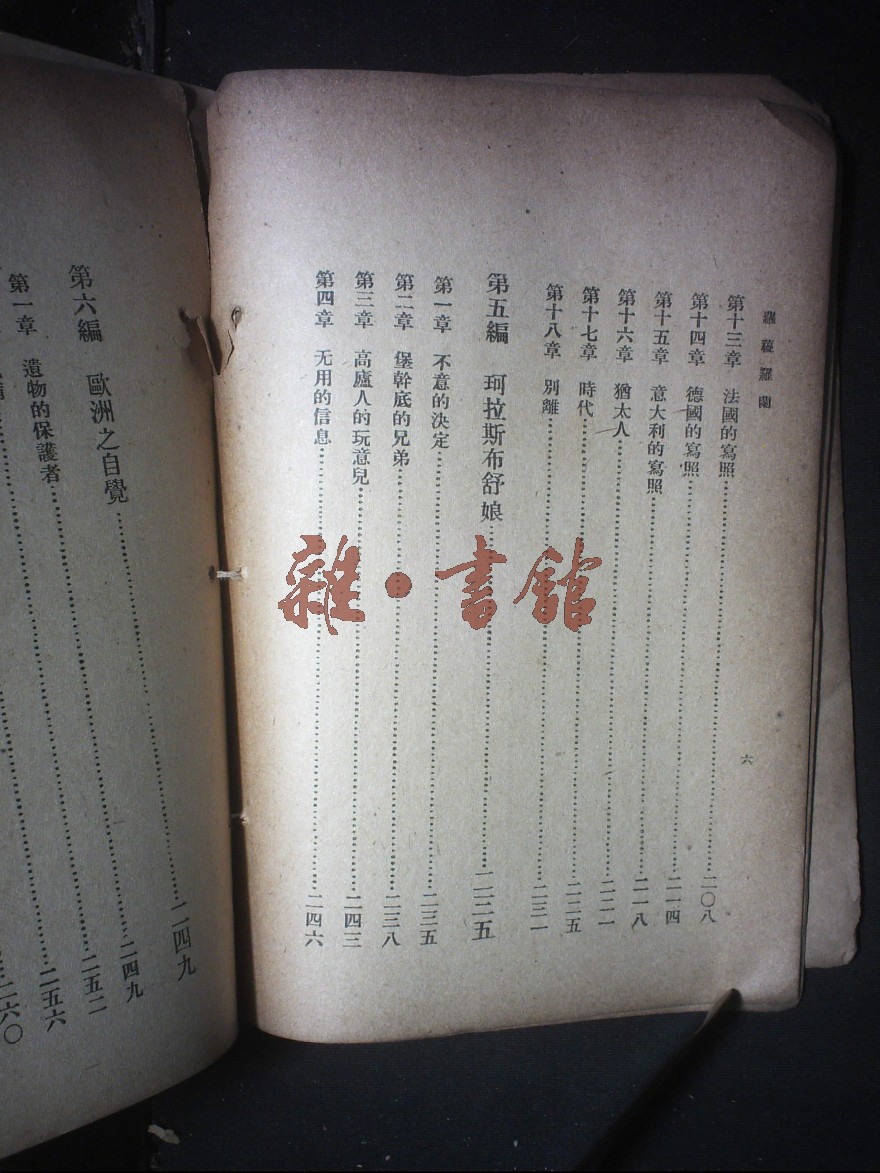 六
第十三章 法國的寫照……二〇八
第十四章 德國的寫照……二一四
第十五章 意大利的寫照……二一八
第十六章 猶太人……二二一
第十七章 時代……二二五
第十八章 別離……二三一
第五編 珂拉斯布舒娘……二三五
第一章 不意的決定……二三五
第二章 堡幹底的兄弟……二三八
第三章 高廬人的玩意兒……二四三
第四章 无用的信息……二四六
第六編 歐洲之自覺……二四九
第一章 遺物的保護者……二四九
二五二
二五六
二六〇
雜·書館